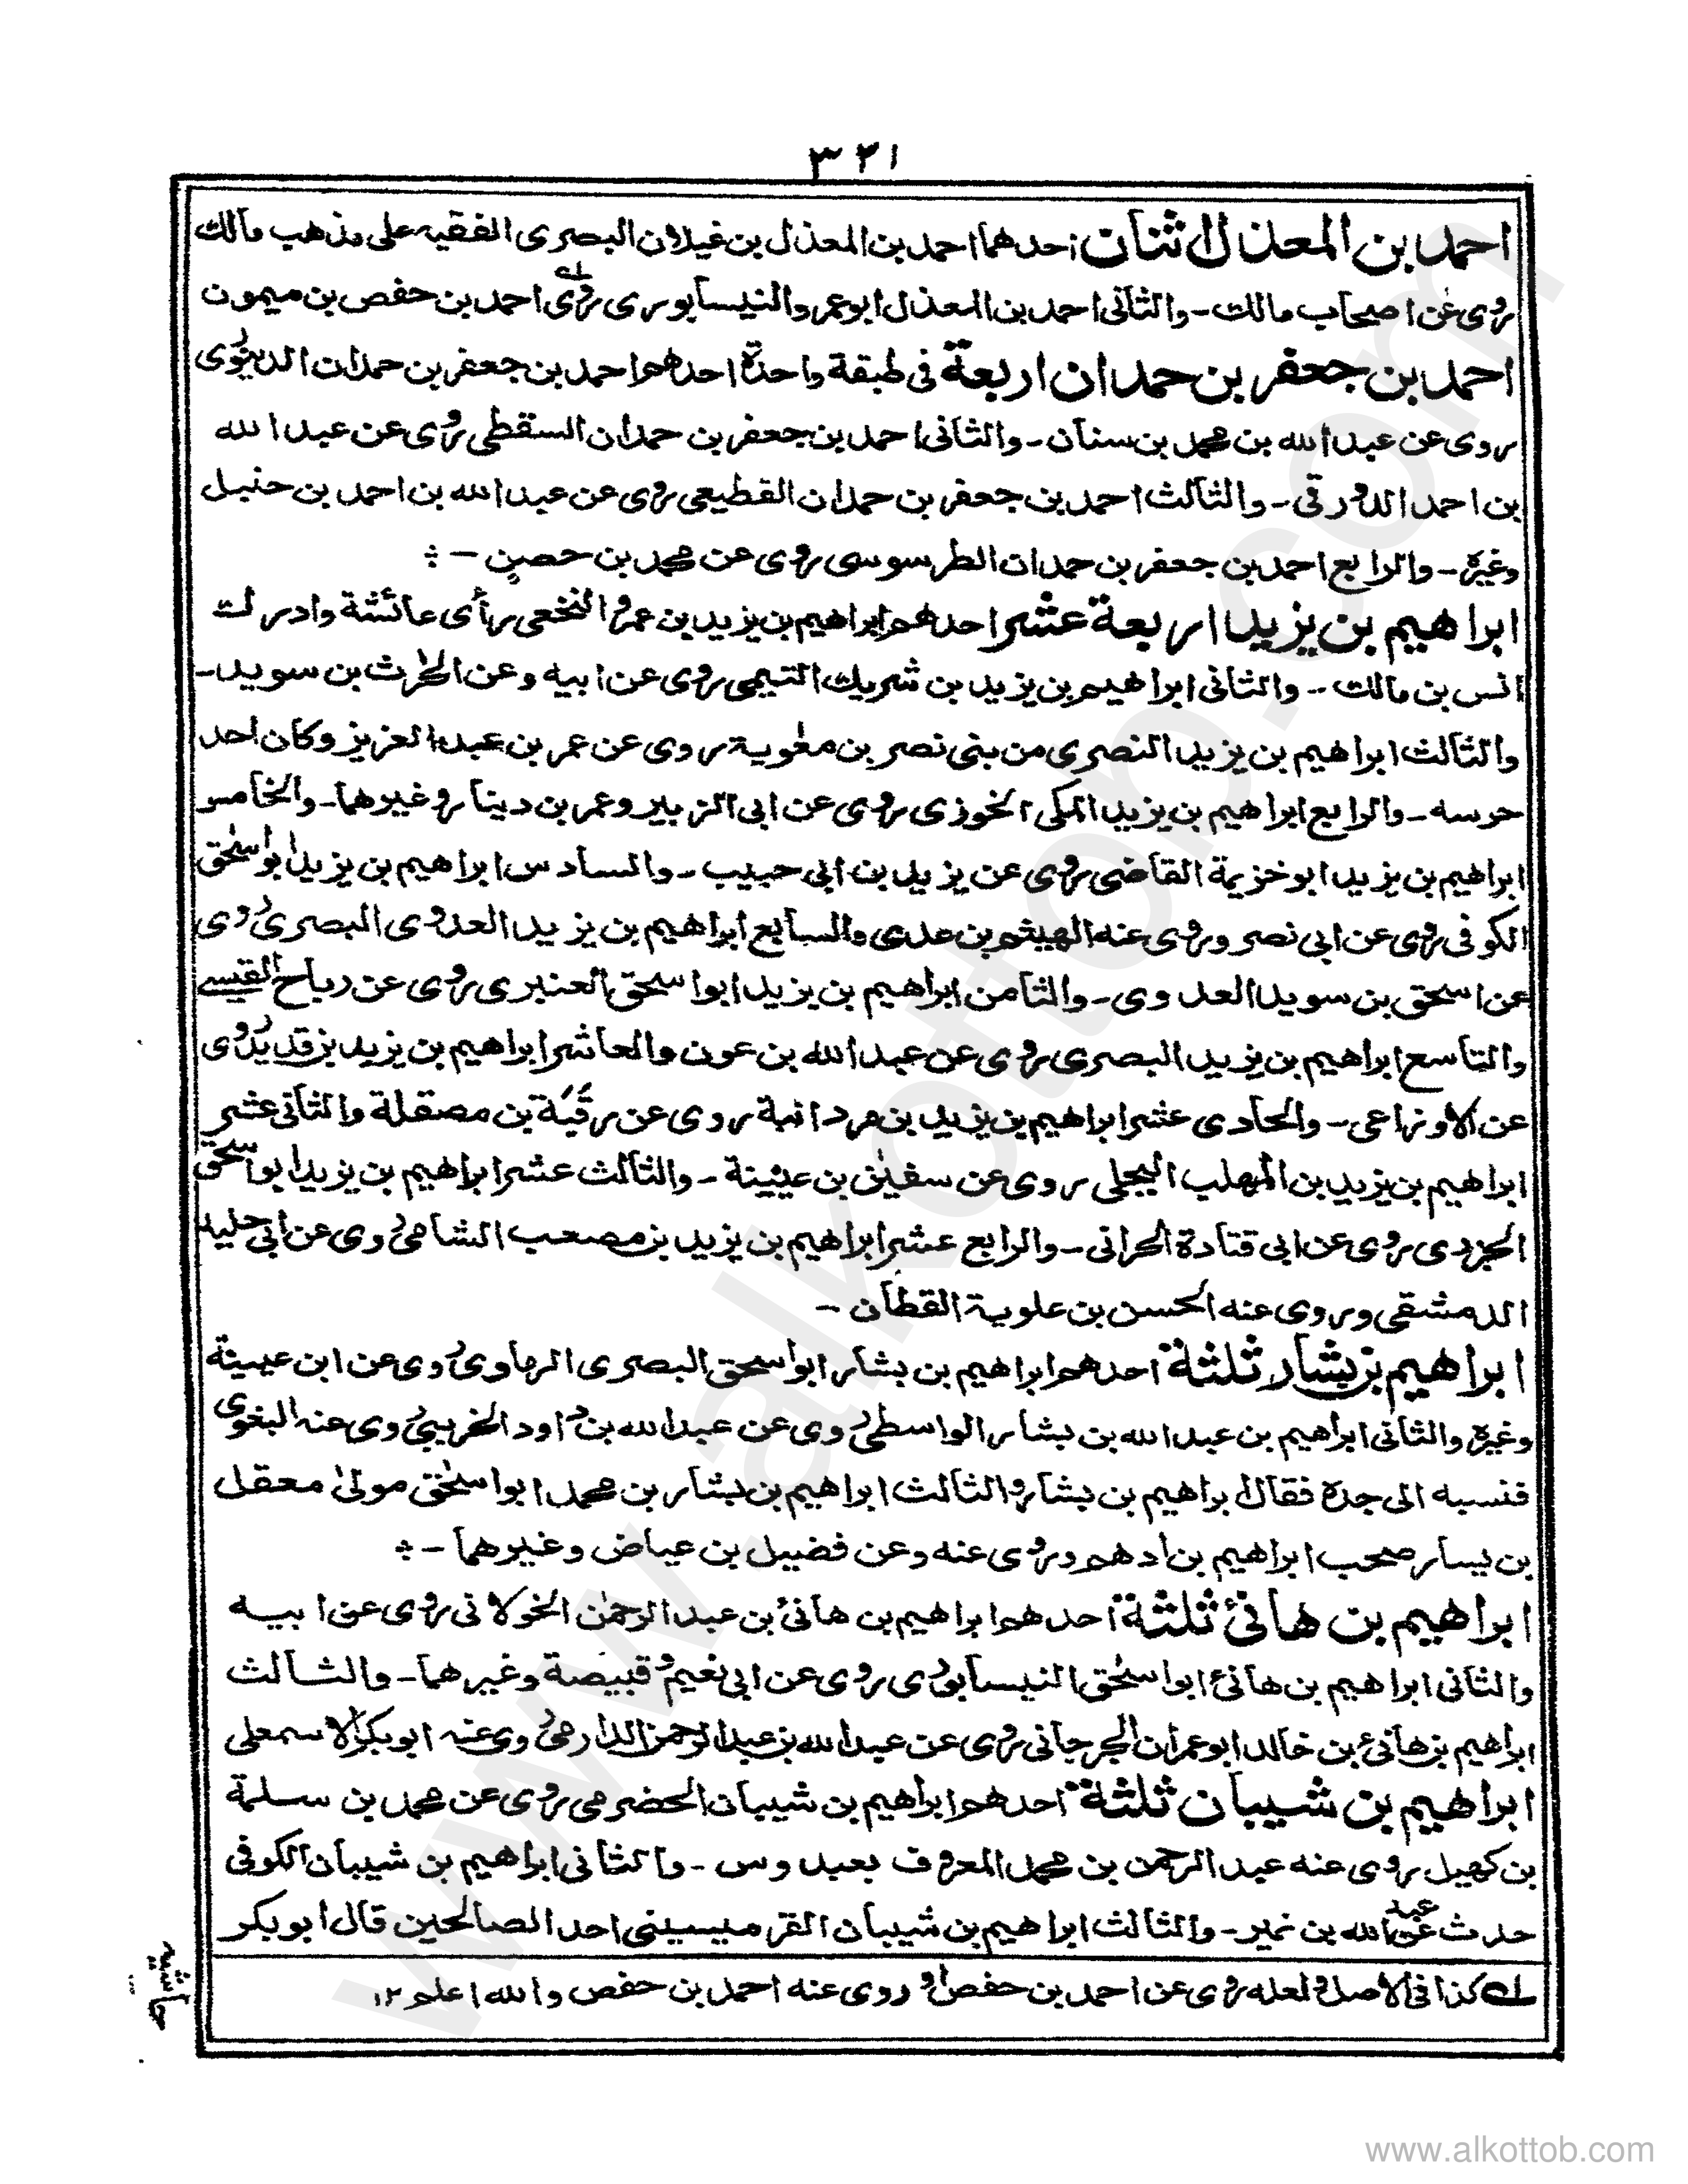 ٣٢١
احمد بن المعذل اثنان احدهما احمد بن المعذل بن غيلان البصرى الفقيه على مذهب مالك
روى عن اصحاب مالك - والثانى احمد بن المعذل ابو عمر والنيسابورى روى ۱ه احمد بن حفص بن ميمون
احمد بن جعفر بن حمدان اربعة فى طبقة واحدة احدهم احمد بن جعفر بن حمدان الدينورى
روى عن عبد الله بن محمد بن سنان - والثانى احمد بن جعفر بن حمدان السقطى روى عن عبد الله
بن احمد الدورقى - والثالث احمد بن جعفر بن حمدان القطيعى روى عن عبد الله بن احمد بن حنبل
وغيره - والرابع احمد بن جعفر بن حمدان الطرسوسى روى عن محمد بن حصين -
ابراهيم بن يزيد اربعة عشر احدهم ابراهيم بن يزيد بن عمرو النخعى رأى عائشة وادرك
انس بن مالك - والثانى ابراهيم بن يزيد بن شريك التيمى روى عن ابيه وعن الحرث بن سويد -
والثالث ابراهيم بن يزيد النصرى من بنى نصر بن معوية روى عن عمر بن عبد العزيز وكان احد
حرسه - والرابع ابراهيم بن يزيد المكى الخوزى روى عن ابى الزبير وعمر بن دينار وغيرهما - والخامس
ابراهيم بن يزيد ابو خزيمة القاضى روى عن يزيد بن ابى حبيب - والسادس ابراهيم بن يزيد ابو اسحق
الكوفى روى عن ابى نصر وروى عنه الهيثم بن عدى والسابع ابراهيم بن يزيد العدوى البصرى روى
عن اسحق بن سويد العدوى - والثامن ابراهيم بن يزيد ابو اسحق العنبرى روى عن رباح القيسى
والتاسع ابراهيم بن يزيد البصرى روى عن عبد الله بن عون والعاشر ابراهيم بن يزيد بن قديد روى
عن الاوزاعى - والحادى عشر ابراهيم بن يزيد بن مردانبة روى عن رقبة بن مصقلة والثانى عشر
ابراهيم بن يزيد بن المهلب البجلى روى عن سفين بن عيينة - والثالث عشر ابراهيم بن يزيد ابو اسحق
الجزرى روى عن ابى قتادة الحرانى - والرابع عشر ابراهيم بن يزيد بن مصعب الشامى روى عن ابى خليد
الدمشقى وروى عنه الحسن بن علوية القطان -
ابراهيم بن بشار ثلثة احدهم ابراهيم بن بشار ابو اسحق البصرى الرماوى روى عن ابن عيينة
وغيره والثانى ابراهيم بن عبد الله بن بشار الواسطى روى عن عبد الله بن داود الخريبى روى عنه البغوى
فنسبه الى جده فقال ابراهيم بن بشار والثالث ابراهيم بن بشار بن محمد ابو اسحق مولى معقل
بن يسار صحب ابراهيم بن ادهم وروى عنه وعن فضيل بن عياض وغيرهما -
ابراهيم بن هانئ ثلثة احدهم ابراهيم بن هانئ بن عبد الرحمن الخولانى روى عن ابيه
والثانى ابراهيم بن هانئ ابو اسحق النيسابورى روى عن ابى نعيم وقبيصة وغيرهما - والثالث
ابراهيم بن هانئ بن خالد ابو عمران الجرجانى روى عن عبد الله بن عبد الرحمن الدارمى روى عنه ابو بكر الاسمعلى
ابراهيم بن شيبان ثلثة احدهم ابراهيم بن شيبان الحضرمى روى عن محمد بن سلمة
بن كهيل روى عنه عبد الرحمن بن محمد المعروف بعبدوس - والثانى ابراهيم بن شيبان الكوفى
حدث عن عبد الله بن نمير - والثالث ابراهيم بن شيبان القرميسينى احد الصالحين قال ابو بكر
۱ه كذا فى الاصل ولعله روى عن احمد بن حفص او روى عنه احمد بن حفص والله اعلم ١٢
حاشيه
www.alkottob.com
www.alkottob.com